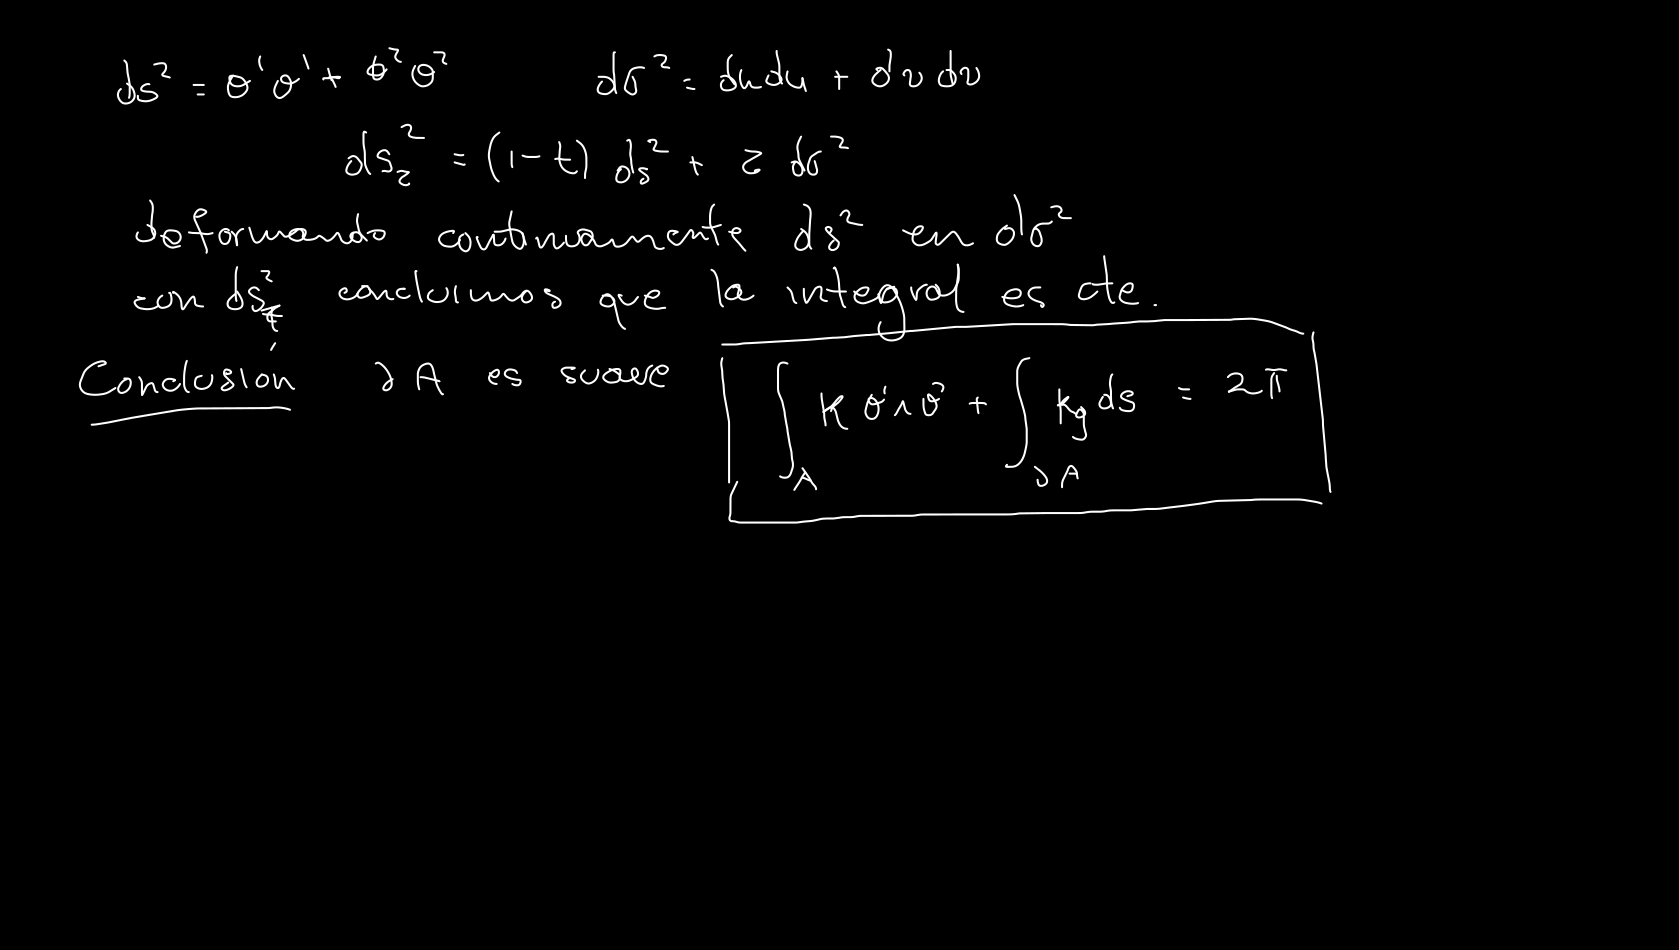 ds² = θ¹θ¹ + θ²θ² dσ² = dudu + dvdv
ds₂² = (1-t) ds² + z dσ²
deformando continuamente ds² en dσ²
con ds²ₜ concluimos que la integral es cte.
Conclusión ∂A es suave ∫_A K θ¹∧θ² + ∫_∂A kg ds = 2π